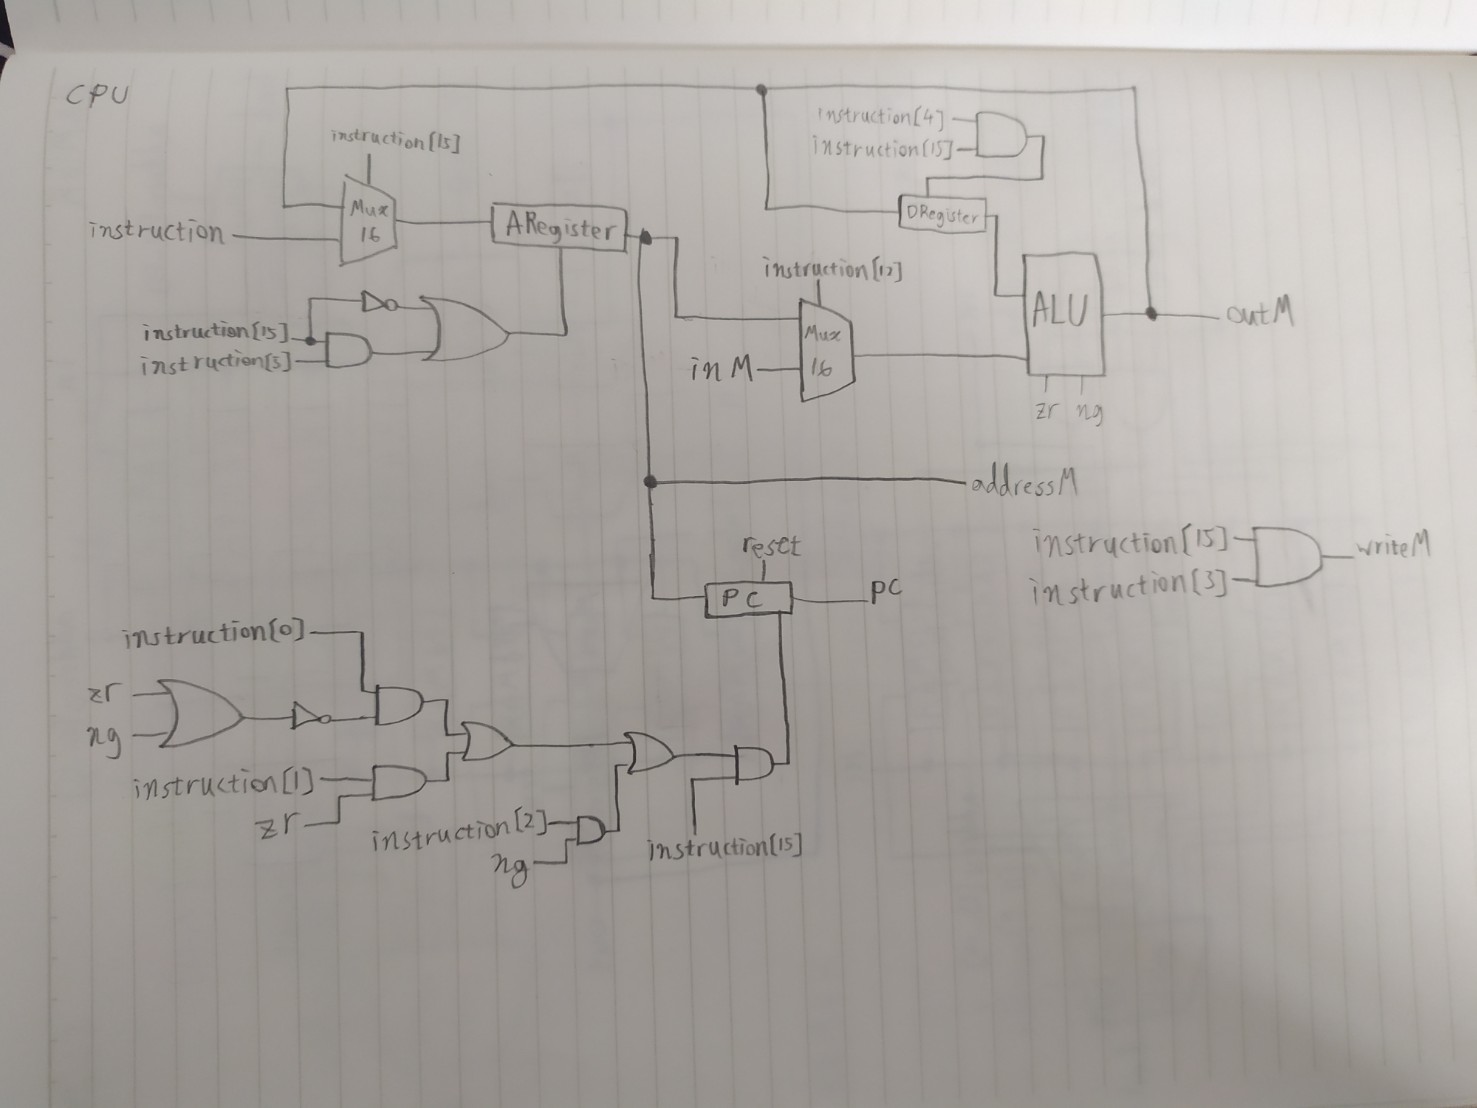 CPU
instruction[15]
instruction[4]
instruction[15]
Mux
16
instruction
ARegister
DRegister
instruction[12]
instruction[15]
instruction[5]
Mux
16
inM
ALU
outM
zr ng
addressM
reset
PC
pc
instruction[15]
instruction[3]
writeM
instruction[0]
zr
ng
instruction[1]
zr
instruction[2]
ng
instruction[15]